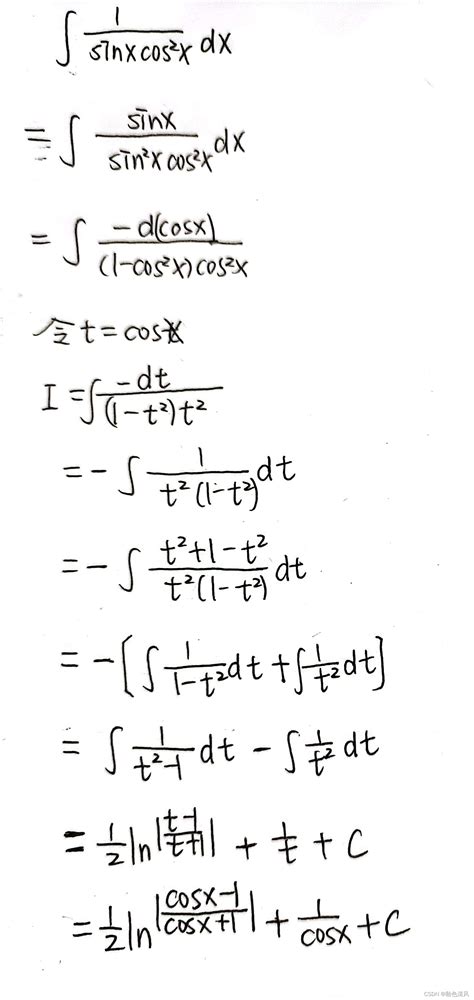 ∫ 1/(sinx cos²x) dx
= ∫ sinx/(sin²x cos²x) dx
= ∫ -d(cosx)/((1-cos²x)cos²x)
令 t = cosx
I = ∫ -dt/((1-t²)t²)
= - ∫ 1/(t²(1-t²)) dt
= - ∫ (t²+1-t²)/(t²(1-t²)) dt
= - [∫ 1/(1-t²) dt + ∫ 1/t² dt]
= ∫ 1/(t²-1) dt - ∫ 1/t² dt
= 1/2 ln|(t-1)/(t+1)| + 1/t + C
= 1/2 ln|(cosx-1)/(cosx+1)| + 1/cosx + C